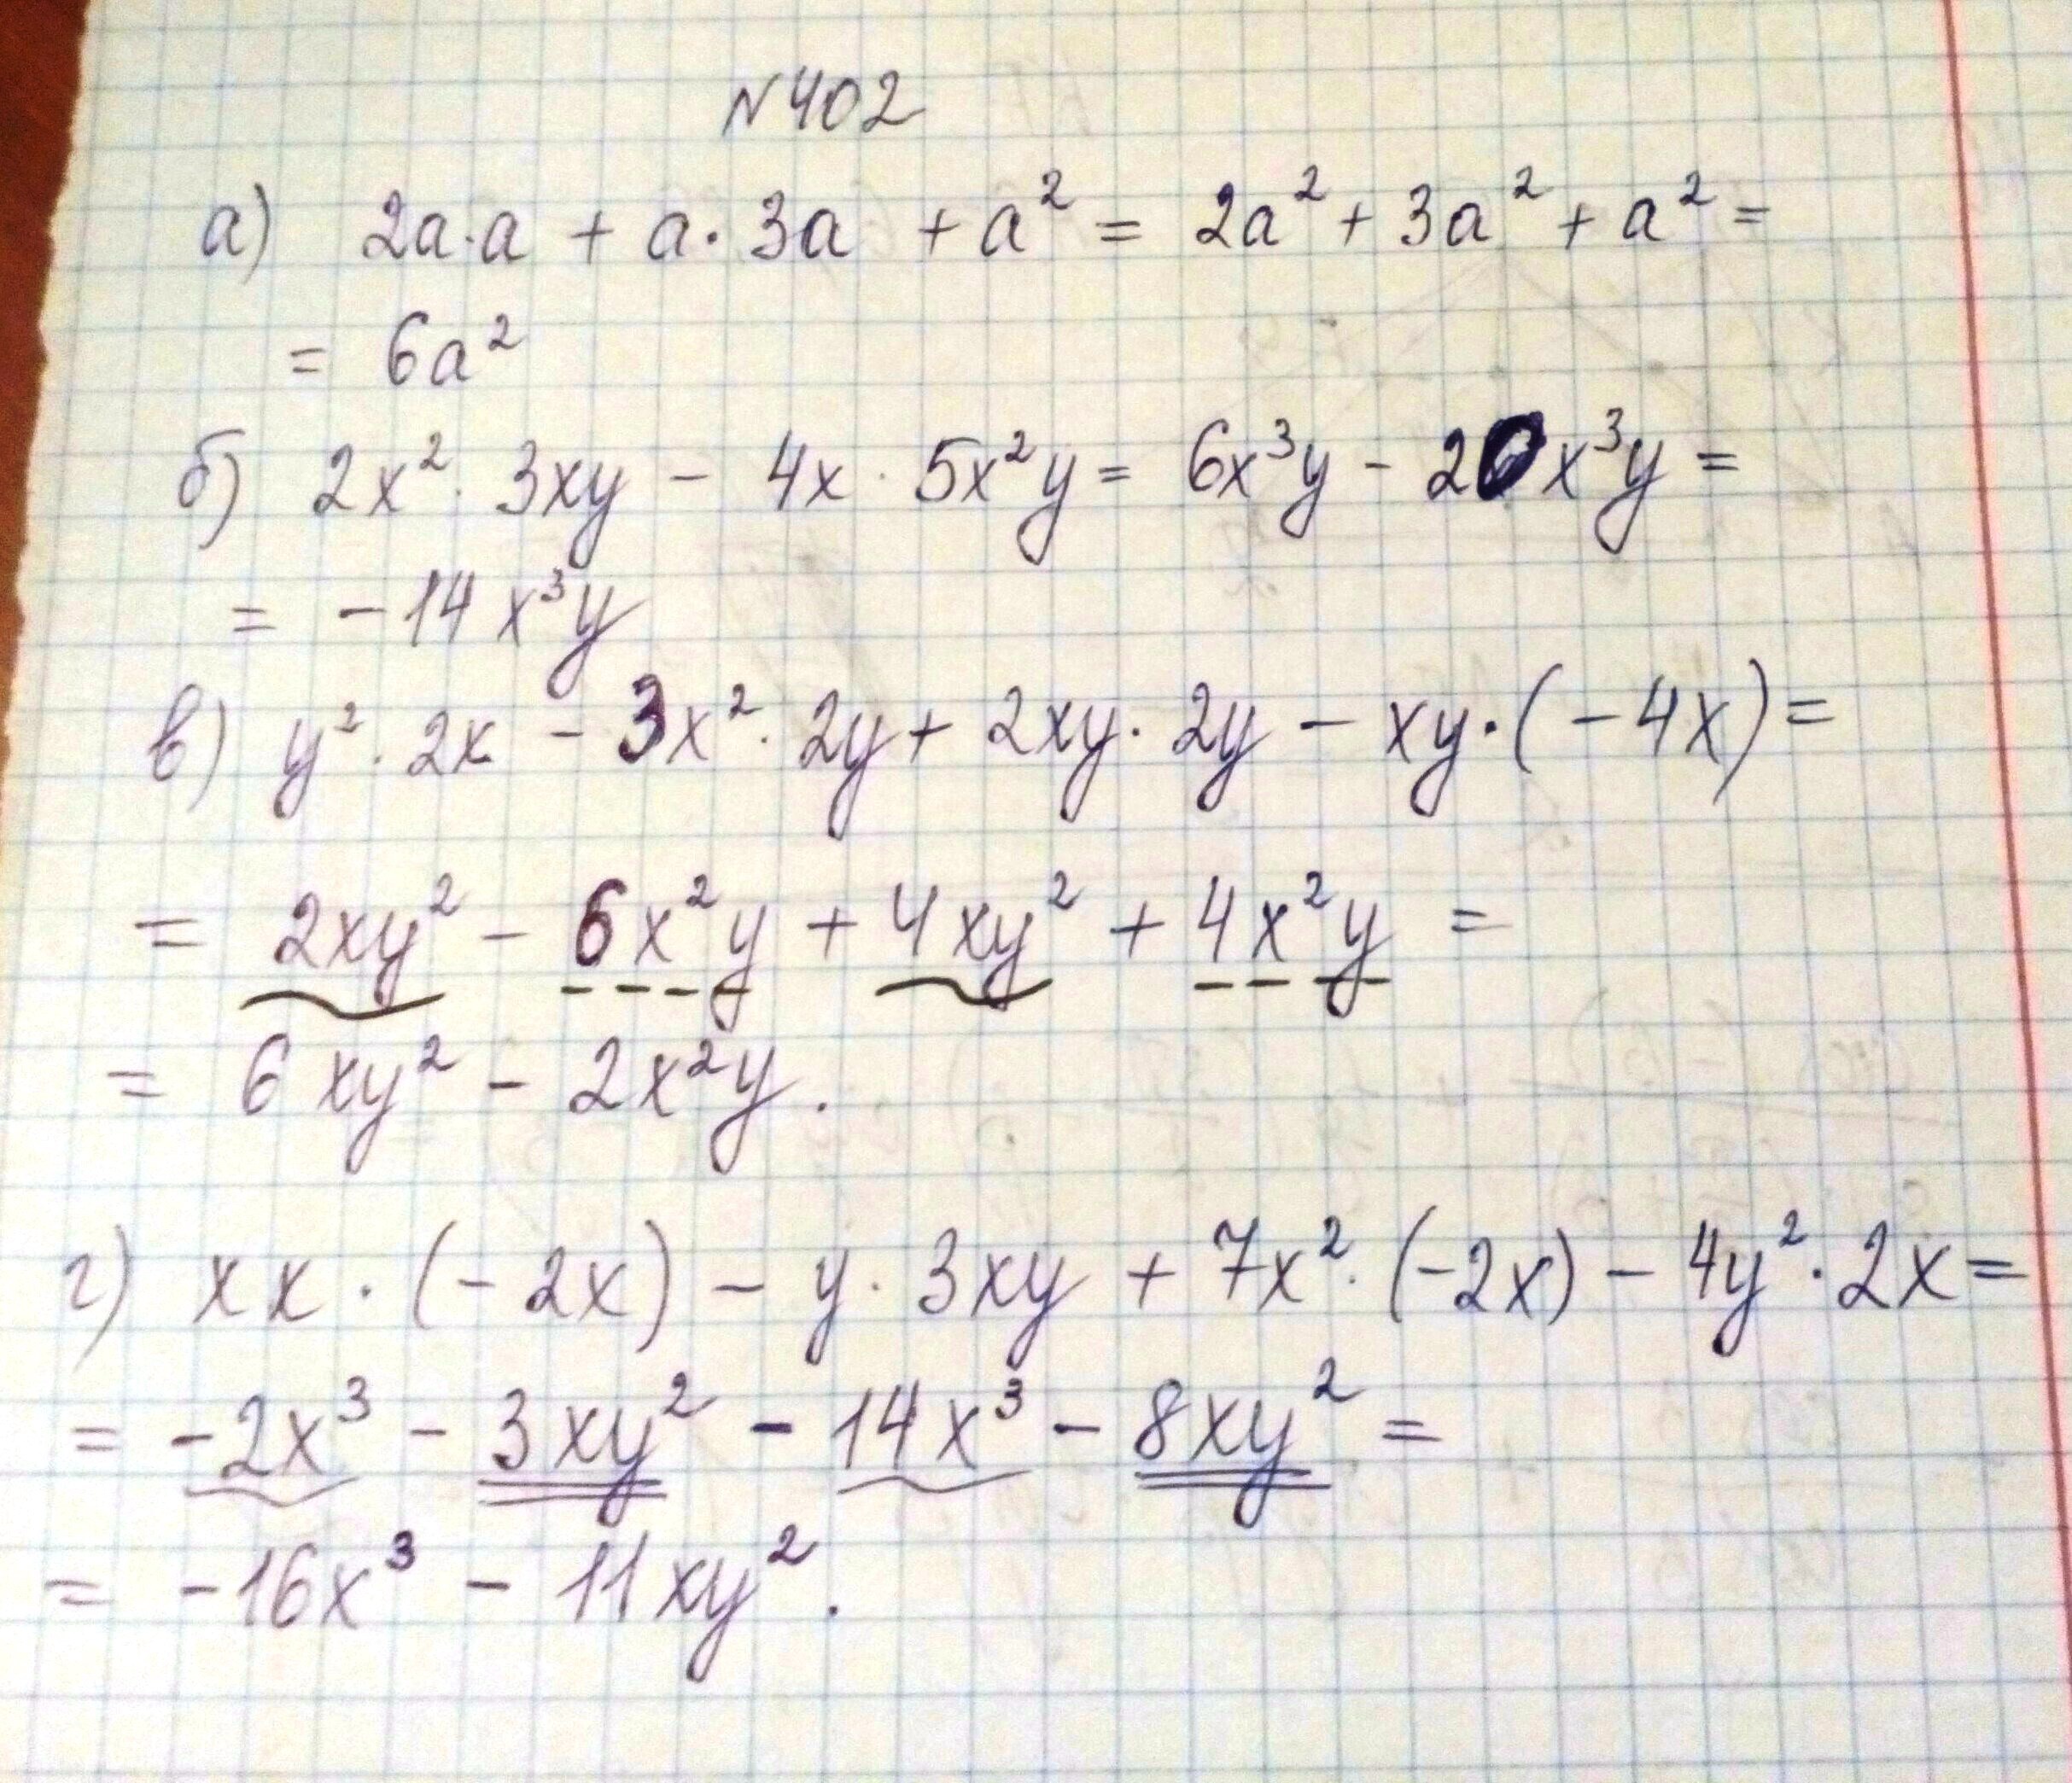 N402
а) 2a·a + a·3a + a² = 2a² + 3a² + a² =
= 6a²
б) 2x²·3xy - 4x·5x²y = 6x³y - 20x³y =
= -14x³y
в) y²·2x - 3x²·2y + 2xy·2y - xy·(-4x) =
= 2xy² - 6x²y + 4xy² + 4x²y =
= 6xy² - 2x²y.
г) xx·(-2x) - y·3xy + 7x²·(-2x) - 4y²·2x =
= -2x³ - 3xy² - 14x³ - 8xy² =
= -16x³ - 11xy².